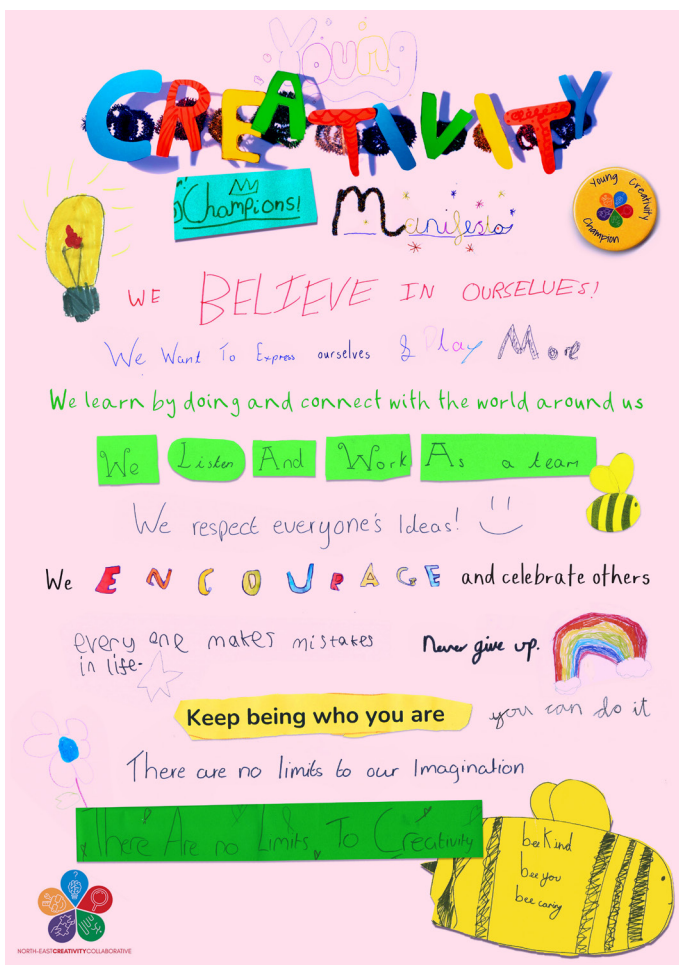 Young
CREATIVITY
Champions!
Manifesto
Young Creativity
Champion
WE BELIEVE IN OURSELVES!
We Want To Express ourselves & Play More
We learn by doing and connect with the world around us
We Listen And Work As a team
We respect everyone's Ideas!
We ENCOURAGE and celebrate others
every one makes mistakes
in life-
Never give up.
Keep being who you are
you can do it
There are no limits to our Imagination
There Are no Limits To Creativity
bee Kind
bee you
bee caring
?
NORTH-EASTCREATIVITYCOLLABORATIVE